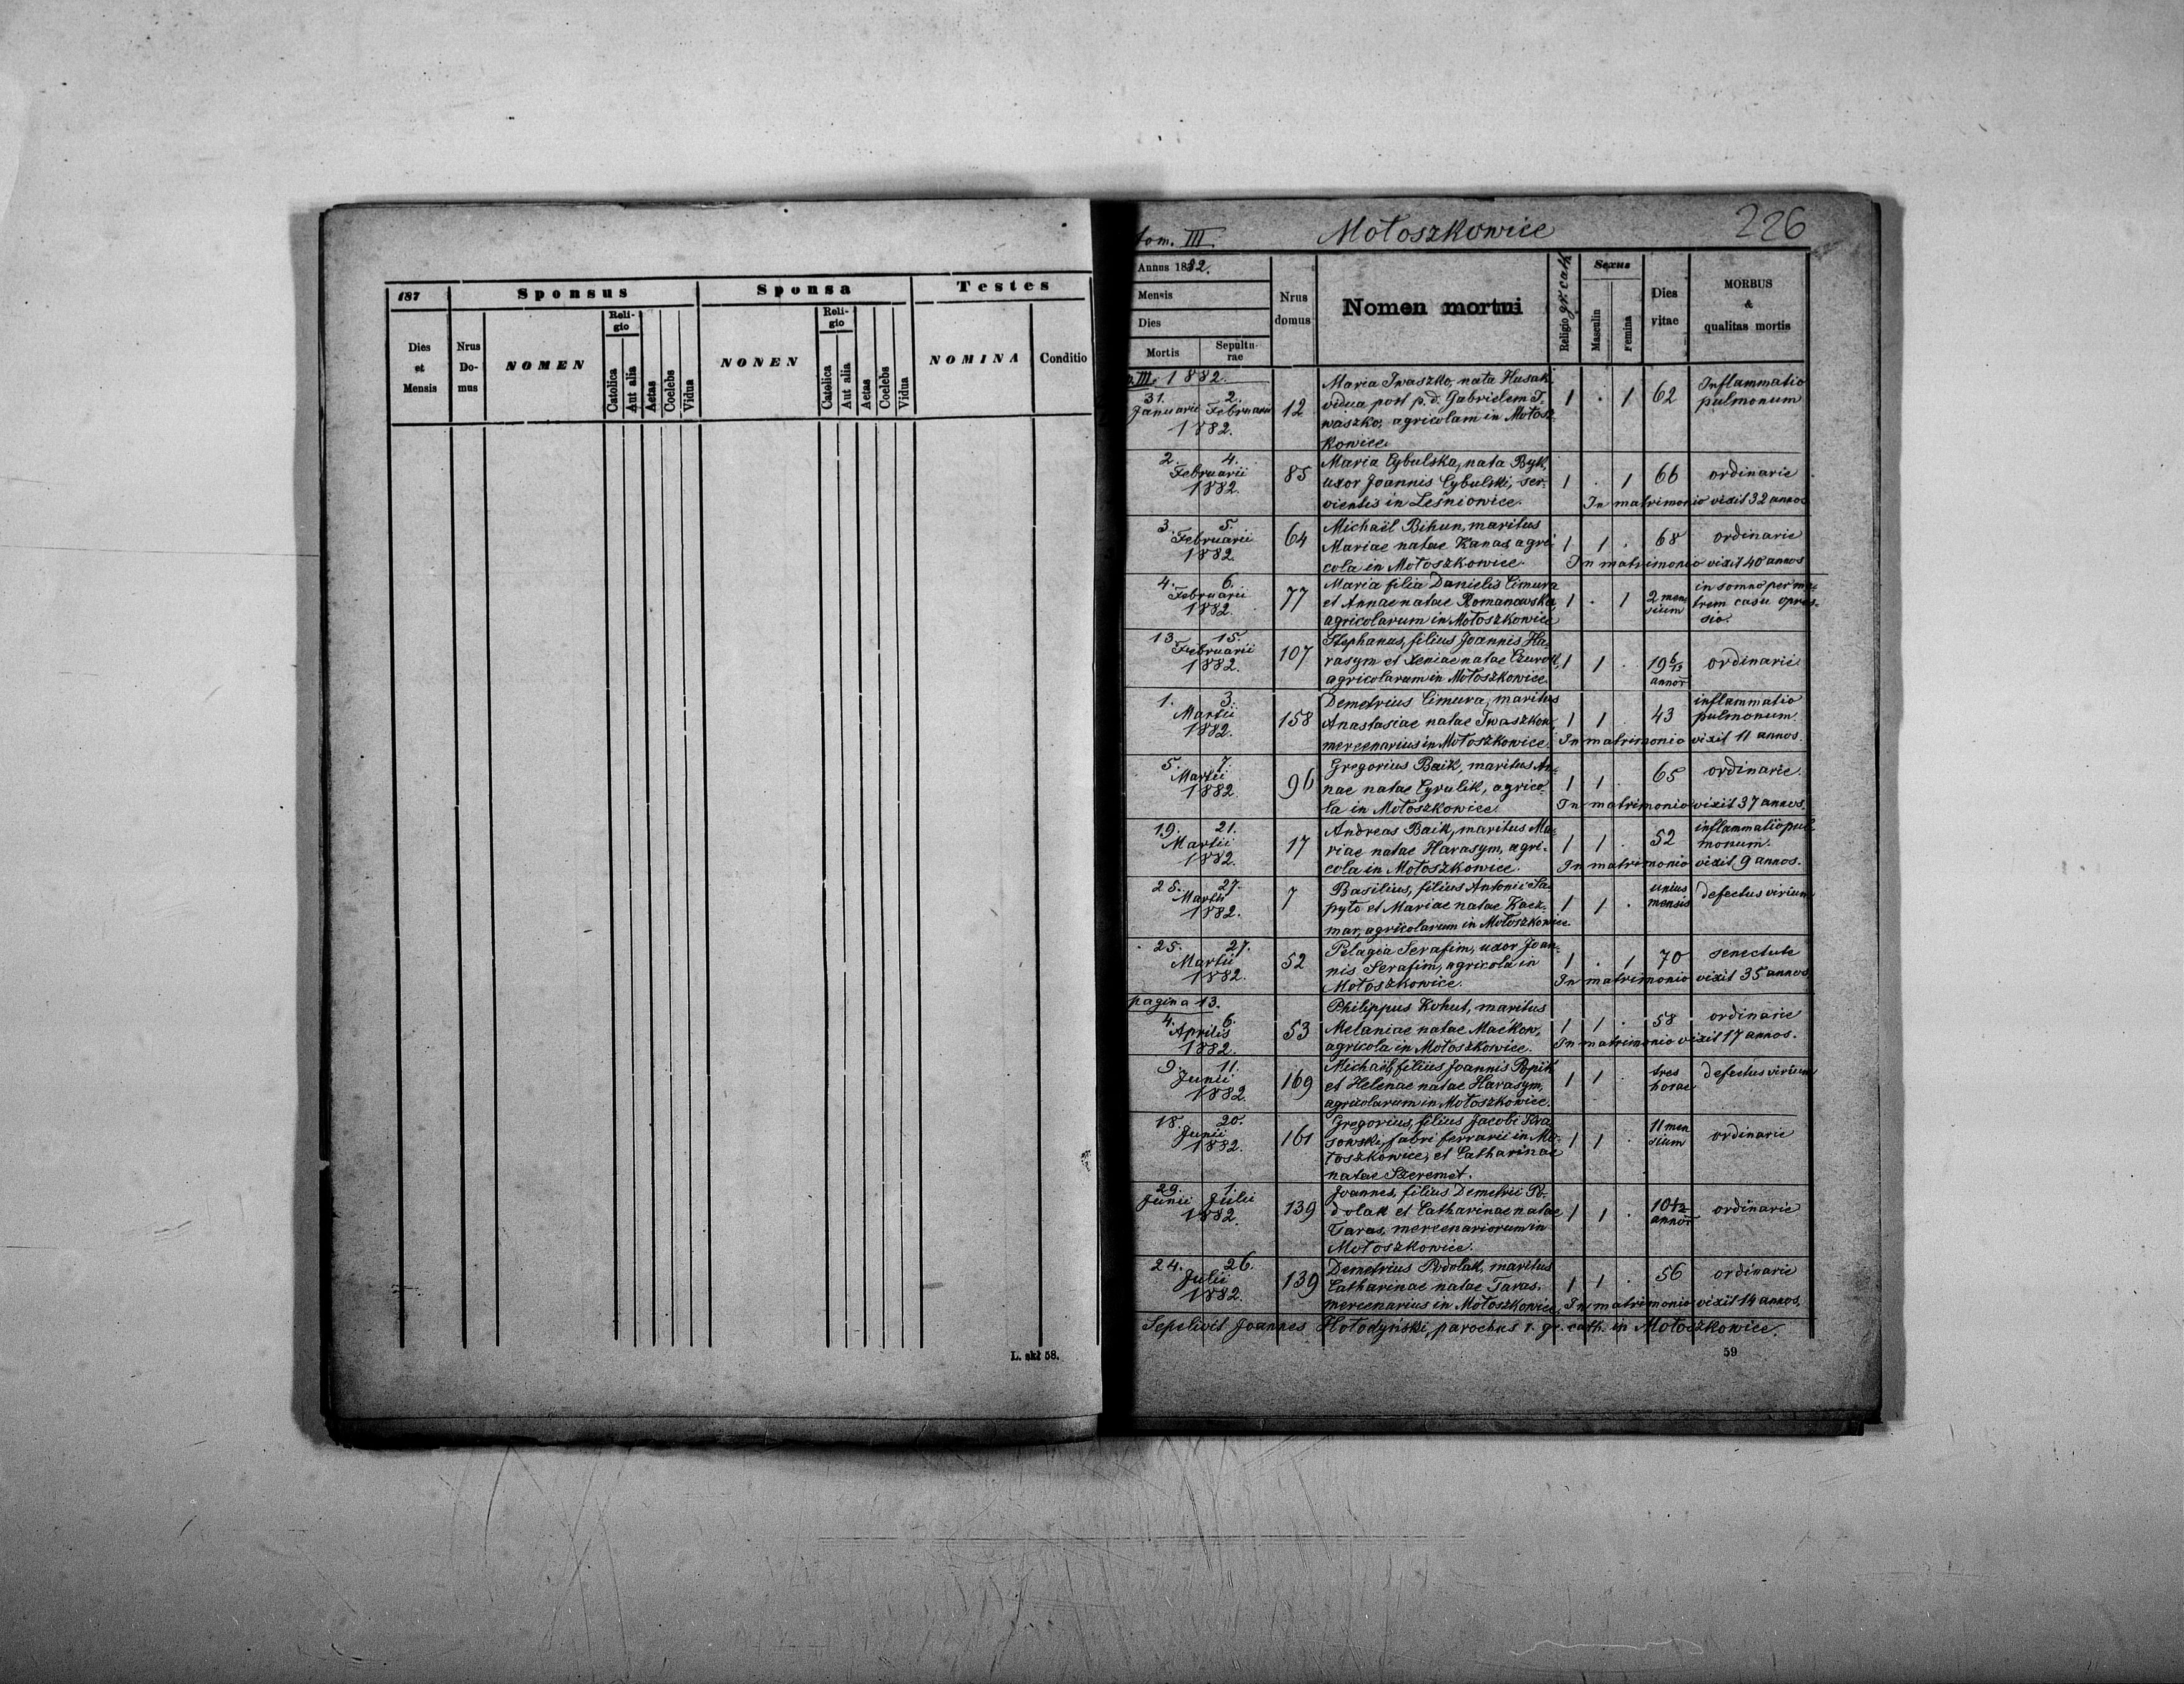 187
Sponsus
Sponsa
Testes
Dies
et
Mensis
Nrus
Do-
mus
NOMEN
Reli-
gio
Catolica
Aut alia
Aetas
Coelebs
Vidua
NONEN
Reli-
gio
Catolica
Aut alia
Aetas
Coelebs
Vidua
NOMINA
Conditio
L. skł 58.
tom. III
Mołoszkowice
226
Annus 1882.
Mensis
Dies
Mortis
Sepultu-
rae
Nrus
domus
Nomen mortui
Religio gr. cath.
Sexus
Masculin
Femina
Dies
vitae
MORBUS
&
qualitas mortis
p. III. 1882.
31. 2.
Januarii Februarii
1882.
12
Maria Iwaszko, nata Husak,
vidua post p. d. Gabrielem I-
waszko, agricolam in Mołosz-
kowice
1 . 1 62
Inflammatio
pulmonum
2. 4.
Februarii
1882.
85
Maria Cybulska, nata Byk,
uxor Joannis Cybulski, ser-
vientis in Leśniowice.
1 . 1 66 ordinarie
In matrimonio vixit 32 annos
3. 5.
Februarii
1882
64
Michaël Bihun, maritus
Mariae natae Kanas, agri-
cola in Mołoszkowice.
1 1 . 68 ordinarie
In matrimonio vixit 40 annos
4. 6.
Februarii
1882.
77
Maria filia Danielis Cimura
et Annae natae Romanowska,
agricolarum in Mołoszkowice
1 . 1 2 men
sium
in somno per ma-
trem casu opres-
sio.
13. 15.
Februarii
1882.
107
Stephanus, filius Joannis Ha-
rasym et Xeniae natae
agricolarum in Mołoszkowice.
1 1 . 19 6/12
annor
ordinarie
1. 3.
Martii
1882.
158
Demetrius Cimura, maritus
Anastasiae natae Iwaszkow,
mercenarius in Mołoszkowice.
1 1 . 43
inflammatio
pulmonum.
In matrimonio vixit 11 annos.
5. 7.
Martii
1882.
96
Gregorius Baik, maritus An-
nae natae Cyrulik, agrico-
la in Mołoszkowice.
1 1 . 65 ordinarie.
In matrimonio vixit 37 annos.
19. 21.
Martii
1882.
17
Andreas Baik, maritus Ma-
riae natae Harasym, agri-
cola in Mołoszkowice.
1 1 . 52
inflammatio pul-
monum.
In matrimonio vixit 9 annos.
25. 27.
Martii
1882.
7
Basilius, filius Antonii Sa-
pyto et Mariae natae Kacz-
mar, agricolarum in Mołoszkowice.
1 1 . unius
mensis
defectus virium
25. 27.
Martii
1882.
52
Pelagia Serafim, uxor Joan-
nis Serafim, agricola in
Mołoszkowice.
1 . 1 70 senectute
In matrimonio vixit 35 annos
pagina 13.
4. 6.
Aprilis
1882.
53
Philippus Kohut, maritus
Melaniae natae Maćkow,
agricola in Mołoszkowice.
1 1 . 58 ordinarie
In matrimonio vixit 17 annos.
9. 11.
Junii
1882.
169
Michaël, filius Joannis Popik
et Helenae natae Harasym,
agricolarum in Mołoszkowice.
1 1 . tres
horae
defectus virium
18. 20.
Junii
1882.
161
Gregorius, filius Jacobi Kra
sowski, fabri ferrarii in Mo-
łoszkowice, et Catharinae
natae Szeremet.
1 1 . 11 men
sium
ordinarie
29. 1.
Junii Julii
1882.
139
Joannes, filius Demetrii Po-
dolak et Catharinae natae
Taras, mercenariorum in
Mołoszkowice.
1 1 . 10 1/2
annor
ordinarie
24. 26.
Julii
1882.
139
Demetrius Podolak, maritus
Catharinae natae Taras,
mercenarius in Mołoszkowice,
1 1 . 56 ordinarie
In matrimonio vixit 14 annos.
Sepelivit Joannes Hołodyński, parochus r. gr. cath. in Mołoszkowice.
59